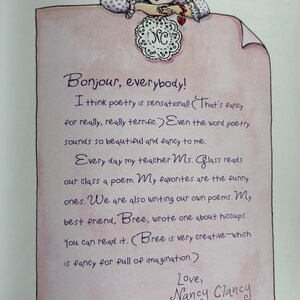 NC
Bonjour, everybody!
I think poetry is sensational! (That's fancy
for really, really terrific.) Even the word poetry
sounds so beautiful and fancy to me.
Every day my teacher Ms. Glass reads
our class a poem. My favorites are the funny
ones. We are also writing our own poems. My
best friend, Bree, wrote one about hiccups.
You can read it. (Bree is very creative—which
is fancy for full of imagination.)
Love,
Nancy Clancy